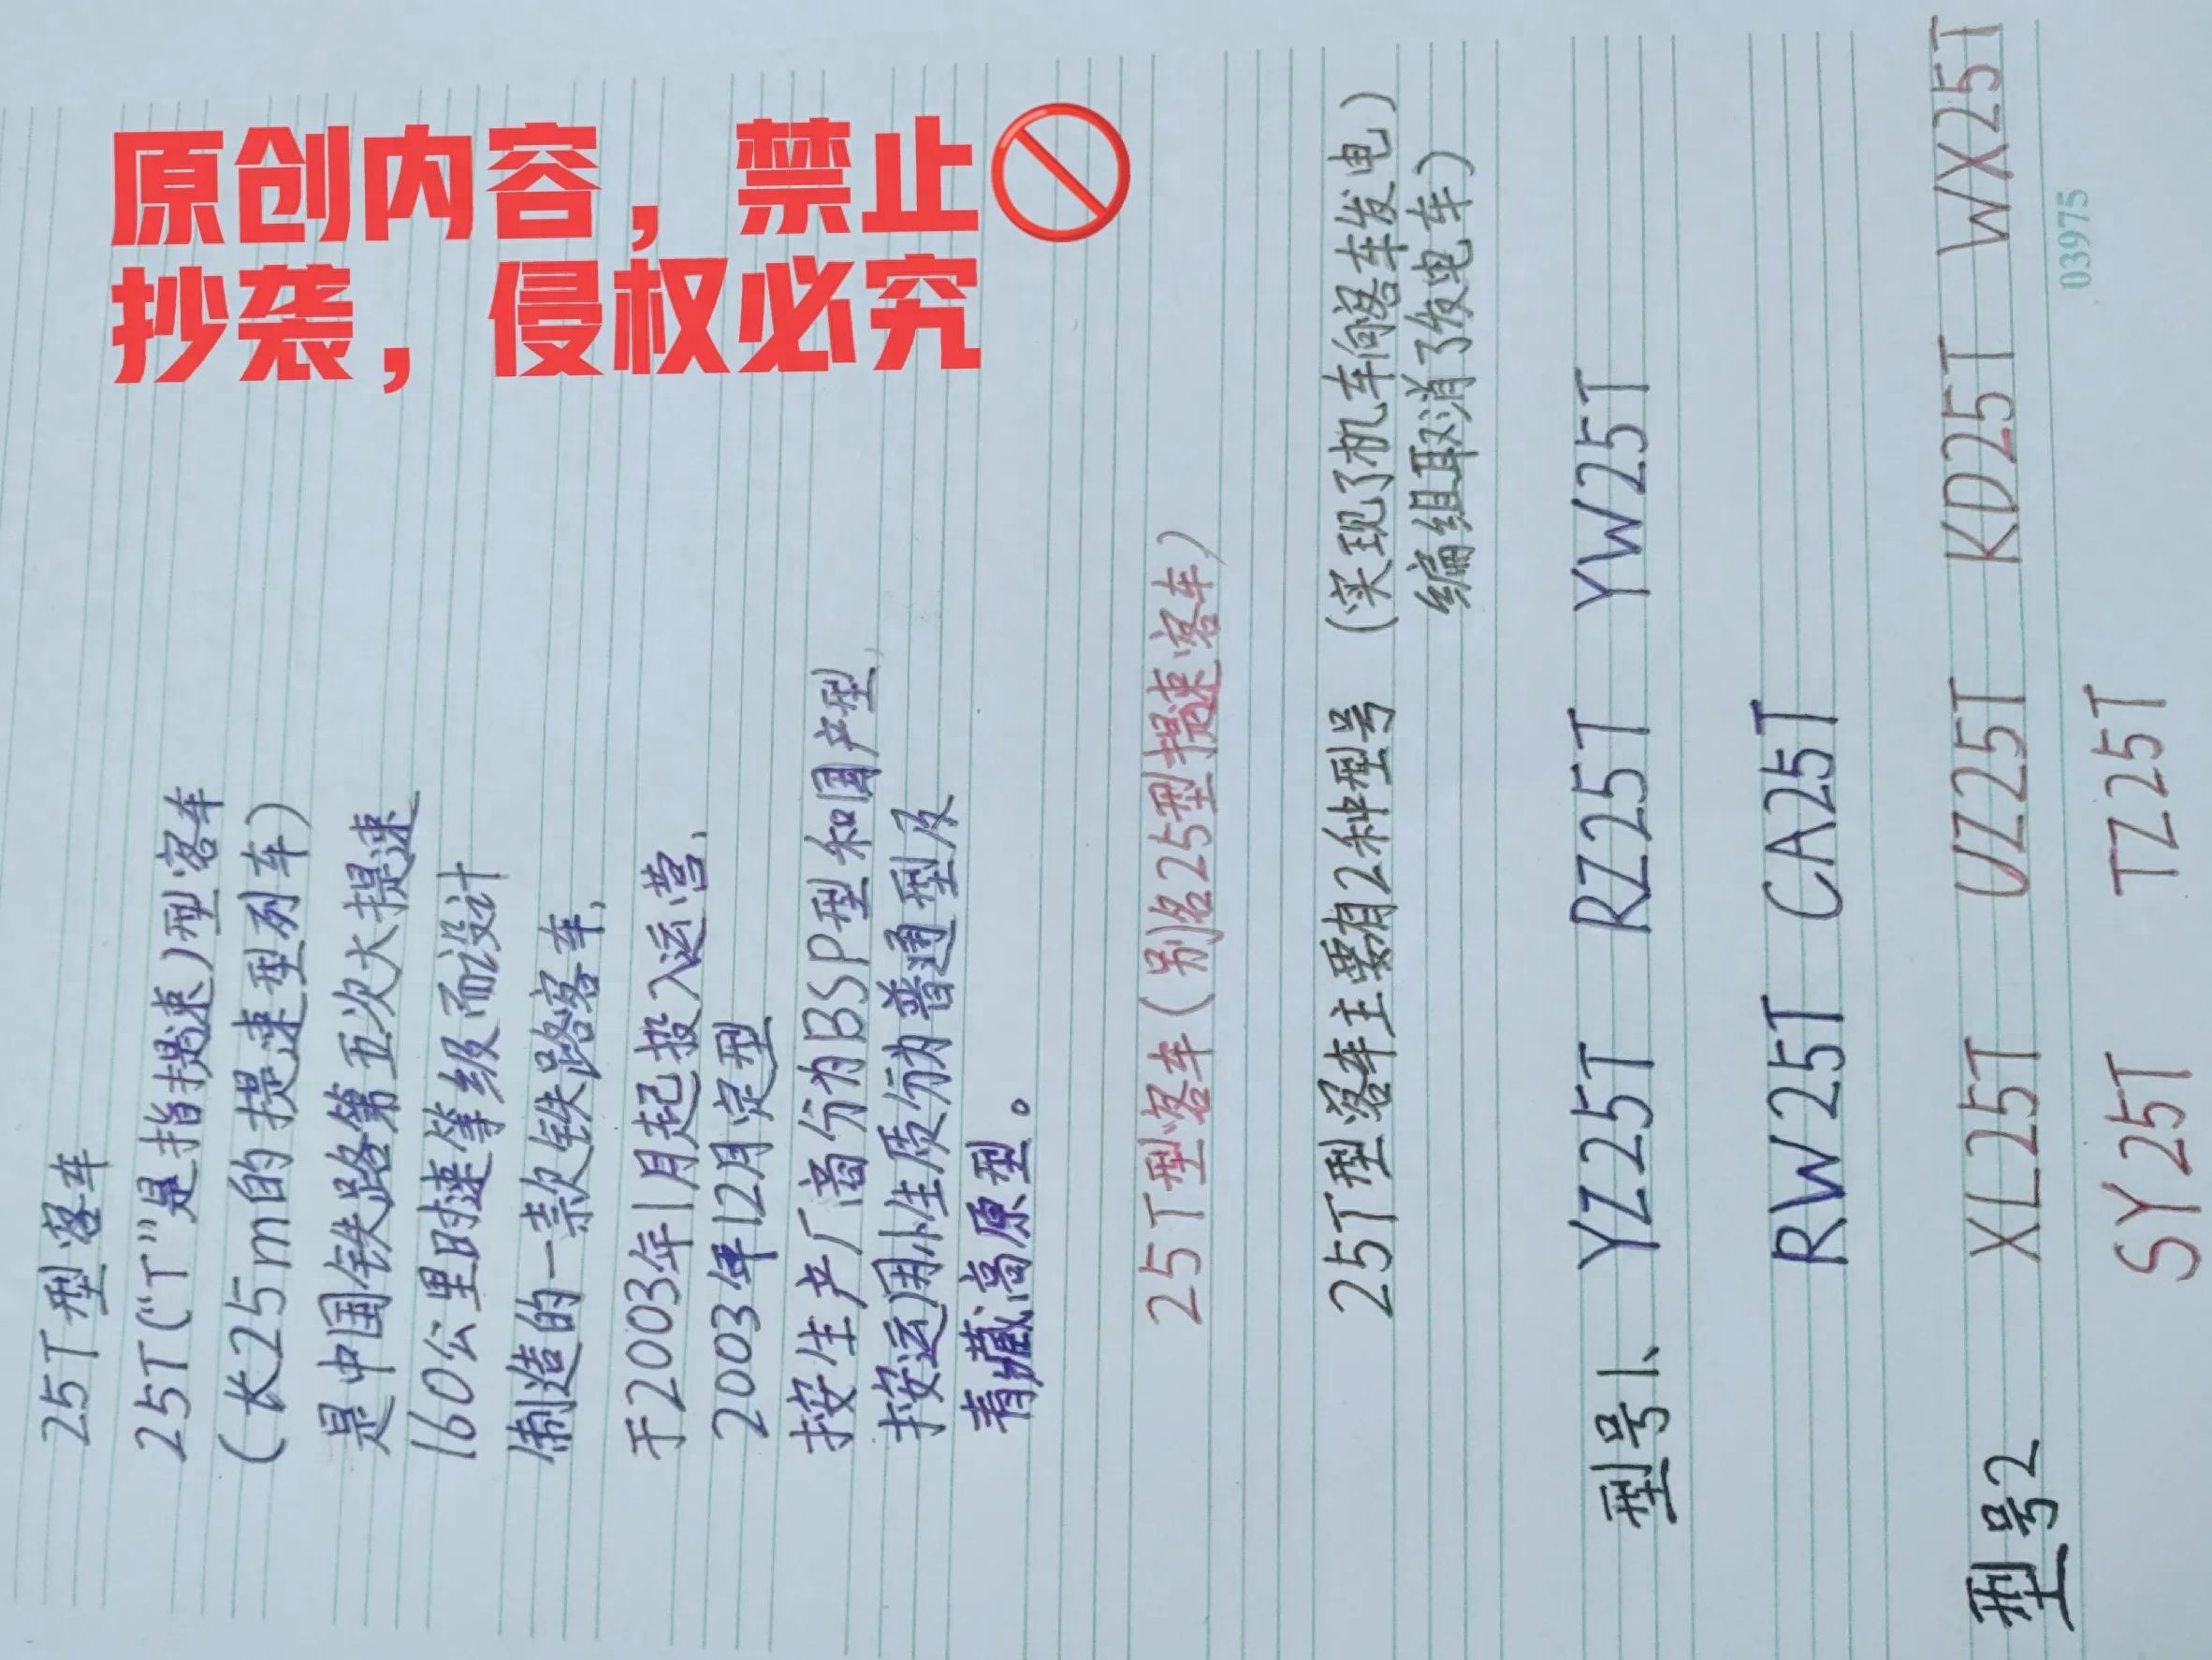 原创内容，禁止🚫
抄袭，侵权必究
25T型客车
25T(“T”是指提速)型客车
(长25m的提速型列车)
是中国铁路第五次大提速
160公里时速等级而设计
制造的一款铁路客车,
于2003年11月起投入运营,
2003年12月定型
按生产厂商分为BSP型和国产型,
按运用性质分为普通型及
青藏高原型。
25T型客车(别名25型提速客车)
25T型客车主要有2种型号
(实现了机车向客车发电)
编组取消了发电车)
型号1、 YZ25T RZ25T YW25T
RW25T CA25T
型号2 XL25T UZ25T KD25T WX25T
SY25T TZ25T
03975